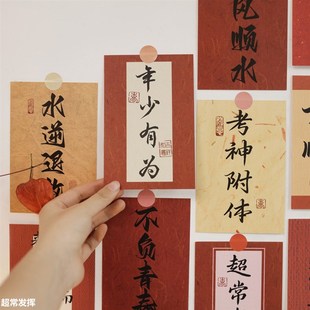 风顺水
年少有为
水逆退
考神附体
不负青春
超常
超常发挥